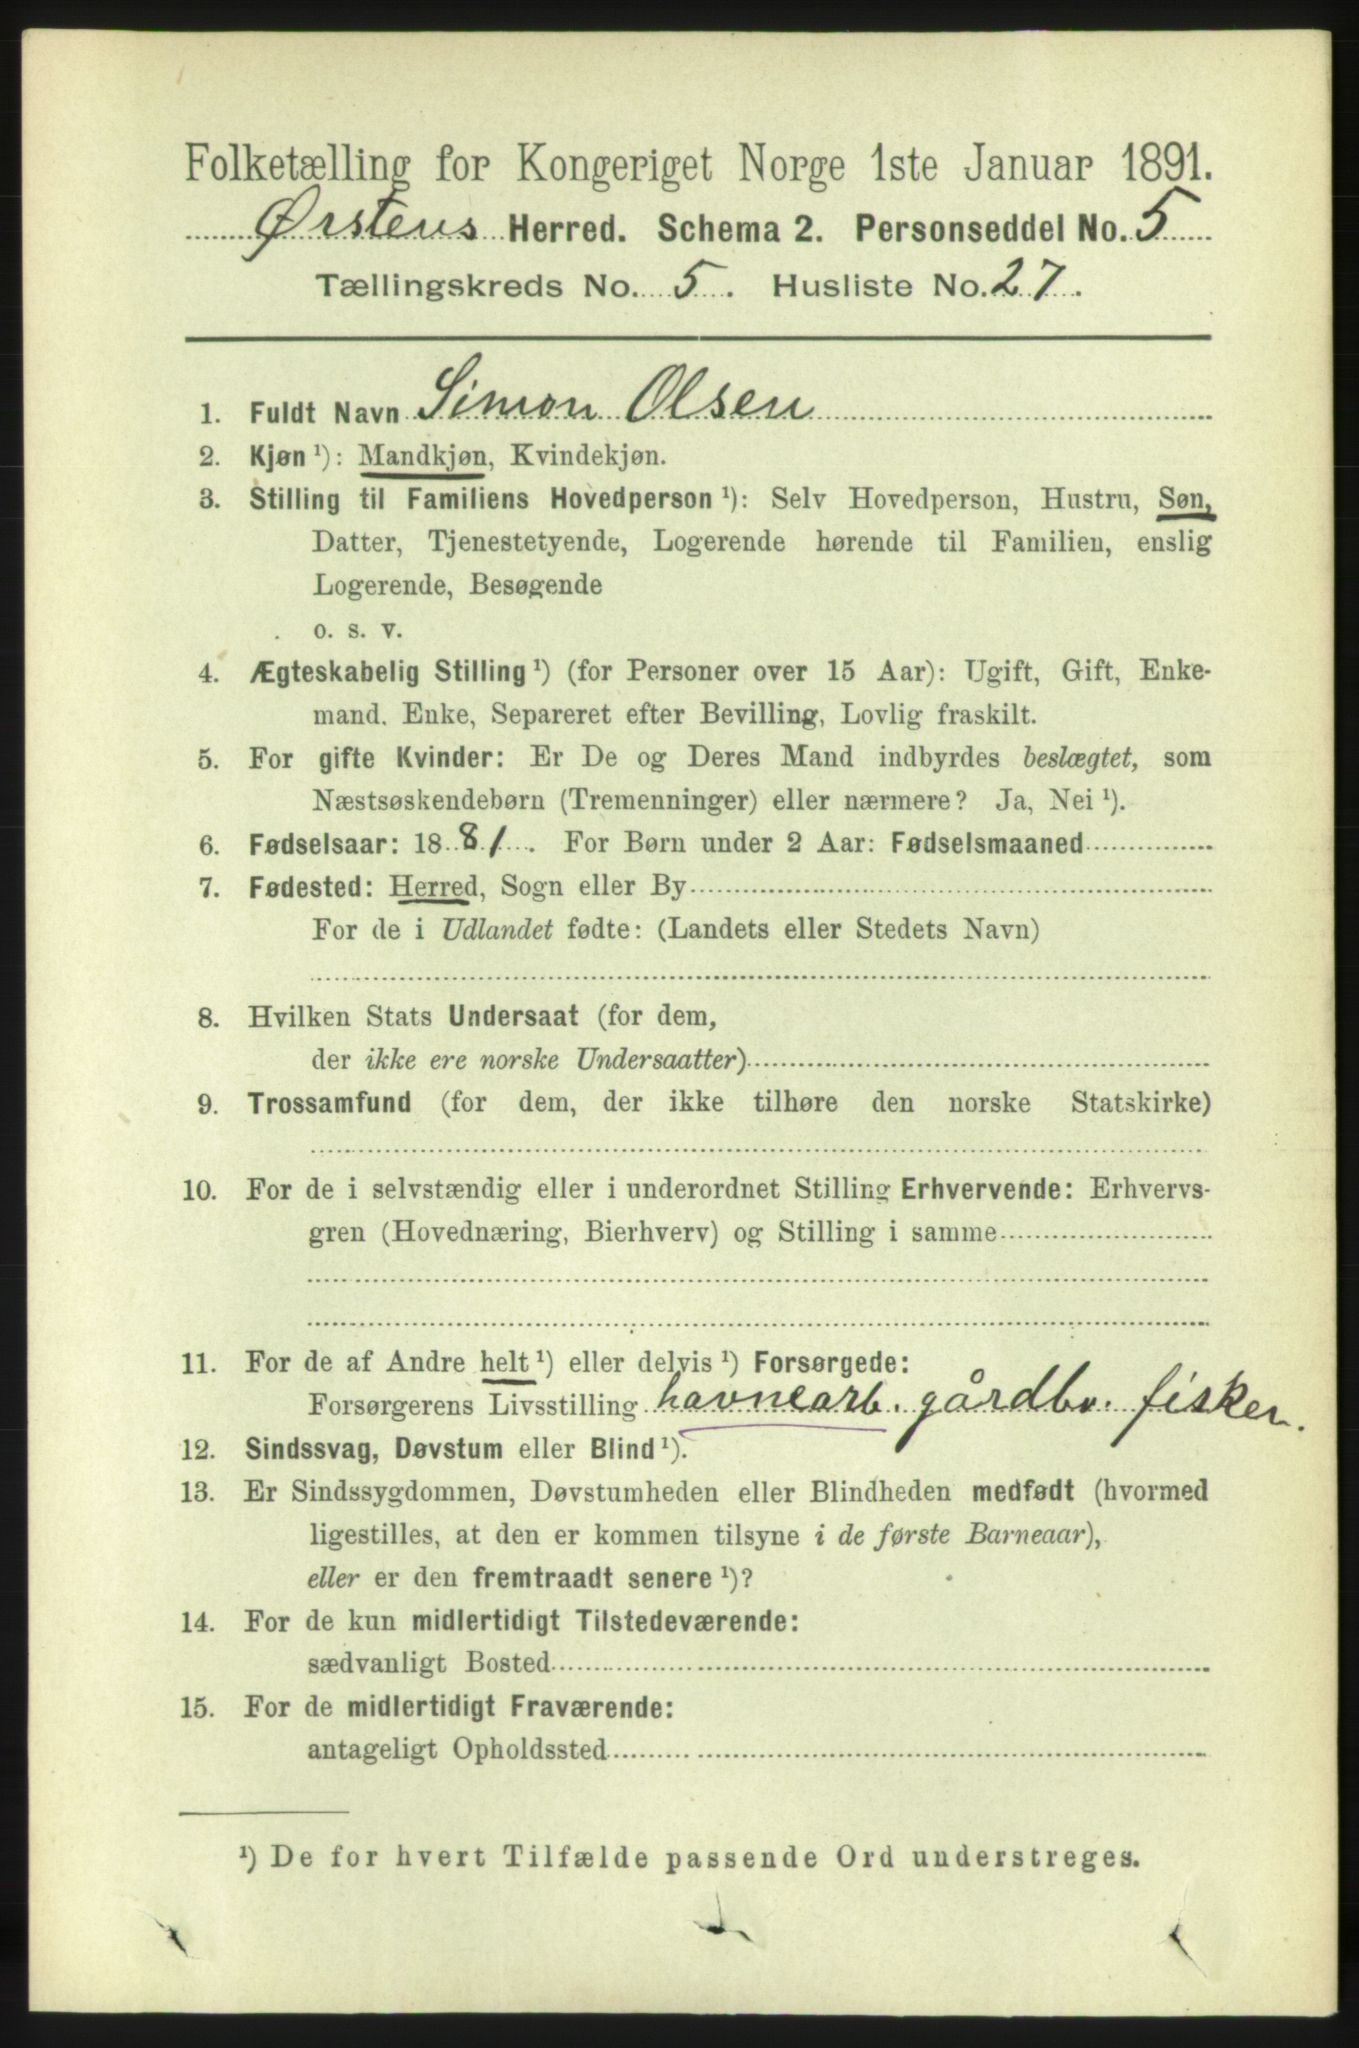 Folketælling for Kongeriget Norge 1ste Januar 1891.
Ørstens Herred. Schema 2. Personseddel No. 5
Tællingskreds No. 5. Husliste No. 27.
1. Fuldt Navn Simon Olsen
2. Kjøn ¹): Mandkjøn, Kvindekjøn.
3. Stilling til Familiens Hovedperson ¹): Selv Hovedperson, Hustru, Søn,
Datter, Tjenestetyende, Logerende hørende til Familien, enslig
Logerende, Besøgende
o. s. v.
4. Ægteskabelig Stilling ¹) (for Personer over 15 Aar): Ugift, Gift, Enke-
mand, Enke, Separeret efter Bevilling, Lovlig fraskilt.
5. For gifte Kvinder: Er De og Deres Mand indbyrdes beslægtet, som
Næstsøskendebørn (Tremenninger) eller nærmere? Ja, Nei ¹).
6. Fødselsaar: 1881. For Børn under 2 Aar: Fødselsmaaned
7. Fødested: Herred, Sogn eller By
For de i Udlandet fødte: (Landets eller Stedets Navn)
8. Hvilken Stats Undersaat (for dem,
der ikke ere norske Undersaatter)
9. Trossamfund (for dem, der ikke tilhøre den norske Statskirke)
10. For de i selvstændig eller i underordnet Stilling Erhvervende: Erhvervs-
gren (Hovednæring, Bierhverv) og Stilling i samme
11. For de af Andre helt ¹) eller delvis ¹) Forsørgede:
Forsørgerens Livsstilling havnearb. gårdbr. fisker.
12. Sindssvag, Døvstum eller Blind ¹).
13. Er Sindssygdommen, Døvstumheden eller Blindheden medfødt (hvormed
ligestilles, at den er kommen tilsyne i de første Barneaar),
eller er den fremtraadt senere ¹)?
14. For de kun midlertidigt Tilstedeværende:
sædvanligt Bosted
15. For de midlertidigt Fraværende:
antageligt Opholdssted
¹) De for hvert Tilfælde passende Ord understreges.